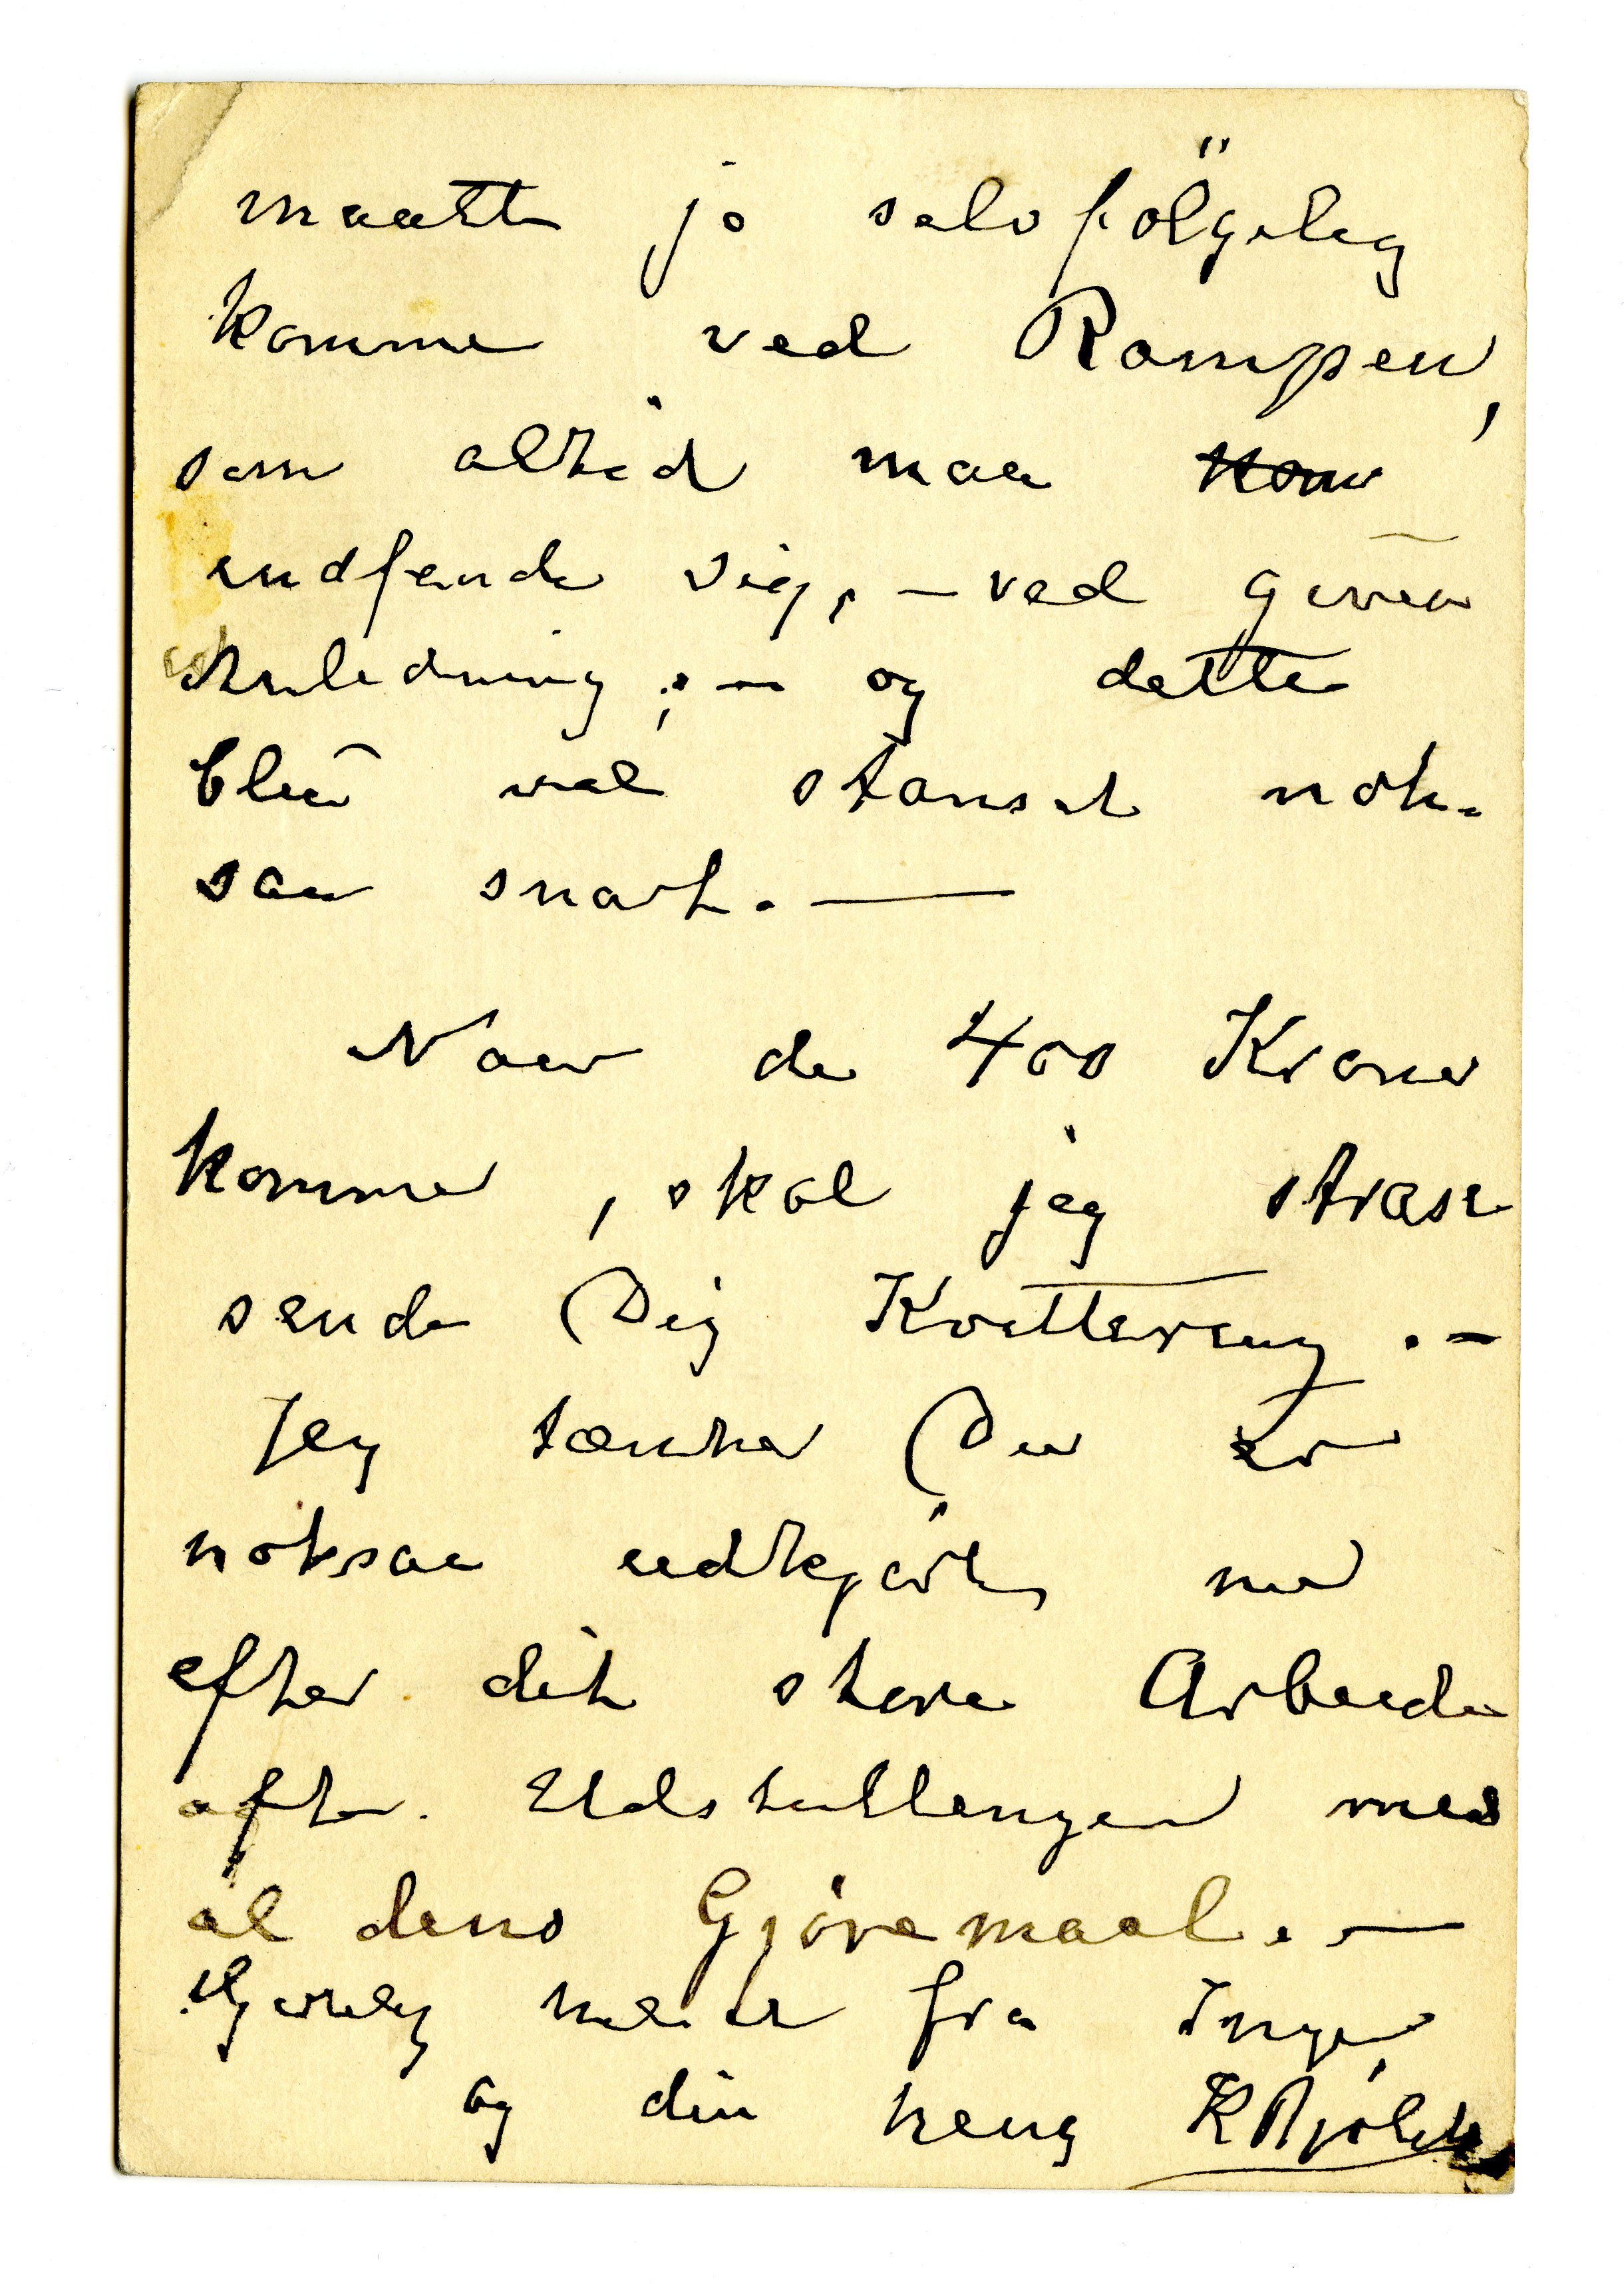 maatte jo selvfölgelig
komme ved Rampen,
som altid maa
indfinde sig, — ved given
Anledning; — og dette
blev vel stanset nok-
saa snart. —
Naar de 400 Kroner
kommer, skal jeg strax
sende Dig Kvittering. —
Jeg tænker Du er
noksaa udkjørt, nu
efter dit store Arbeide
efter Udstillingen med
al dens Gjøremaal. —
Hjertelig hilset fra Inga
og din heng K